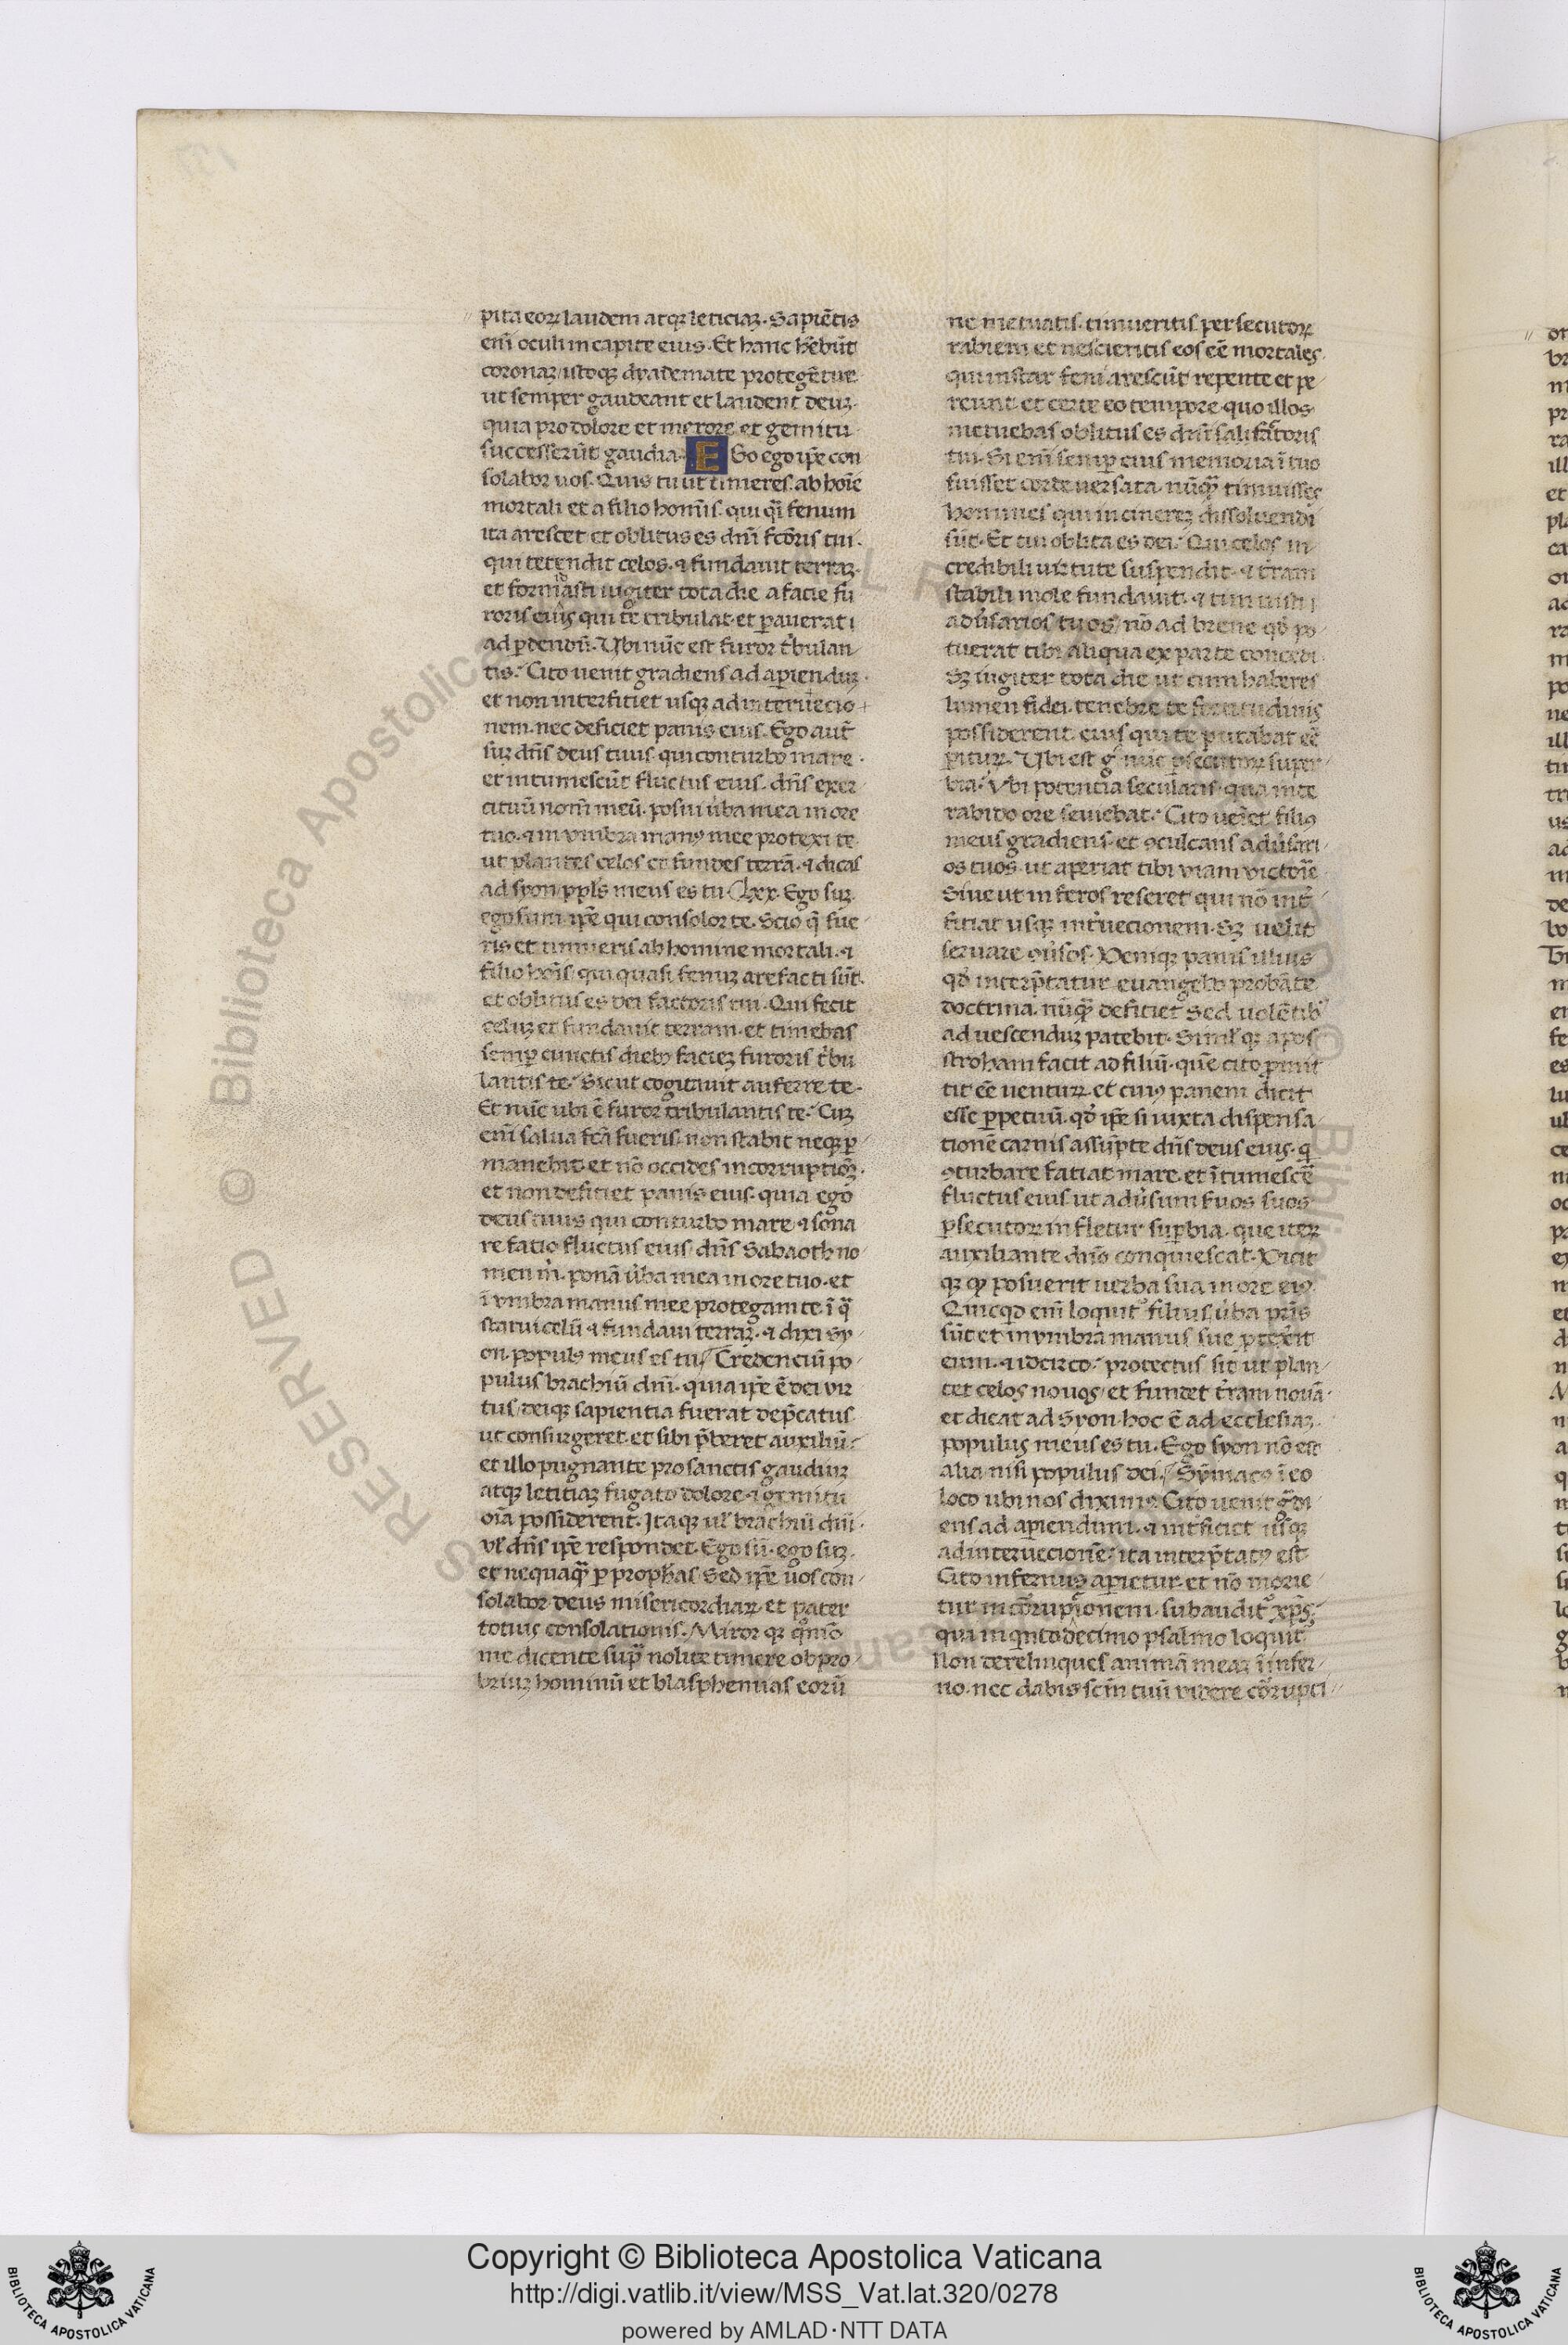 pita eoꝝ laudem atqꝫ leticiaꝫ. Sapiẽtis
em̃ oculi in capite eius. Et hanc hẽbũt
coronaꝫ istoqꝫ dyademate protegẽtur
ut semper gaudeant et laudent deuꝫ.
quia pro dolore et merore et gemitu
successerũt gaudia. E Go ego ip̃e con
solabor uos. Quis tu ut timeres ab hoĩe
mortali et a filio homĩs. qui q̃i fenum
ita arescet et oblitus es dñi fc̃oris tui.
qui tetendit celos. ⁊ fundauit terraꝫ.
et formidasti iugiter tota die a facie fu
roris eius qui te tribulat. et ꝑauerat
ad ꝑdendũ. Vbi nũc est furor t̃bulan
tis. Cito uenit gradiens ad aꝑienduꝫ.
et non interficiet usqꝫ ad internecio
nem. nec deficiet panis eius. Ego aut̃
suꝫ dñs deus tuus. qui conturbo mare.
et intumescũt fluctus eius. dñs exer
cituũ nom̃ meũ. posui ũba mea in ore
tuo. ⁊ in vmbra manꝰ mee protexi te
ut plantes celos et fundes terrã. ⁊ dicas
ad syon. ppl̃s meus es tu. lxx. Ego suꝫ.
ego sum ip̃e qui consolor te. Scio q̃ fue
ris et timueris ab homine mortali. ⁊
filio hoĩs. qui quasi fenuꝫ arefacti sũt.
et oblitus es dei factoris tui. Qui fecit
celuꝫ et fundauit terram. et timebas
semꝑ cunctis diebꝰ facieꝫ furoris t̃bu
lantis te. Sicut cogitauit auferre te.
Et nũc ubi ẽ furor tribulantis te. Cuꝫ
em̃ salua fc̃a fueris. non stabit neqꝫ ꝑ
manebit. et nõ occides in corruptiõꝫ.
et non deficiet panis eius. quia ego
deus tuus qui conturbo mare ⁊ sona
re fatio fluctus eius. dñs Sabaoth no
men m̃. ponã ũba mea in ore tuo. et
ĩ vmbra manus mee protegam te. ĩ q̃
statui celũ ⁊ fundaui terraꝫ. ⁊ dixi sy
on. populꝰ meus es tu. Credenciũ po
pulus brachiũ dñi. quia ip̃e ẽ dei vir
tus. deiqꝫ sapientia fuerat dep̃catus
ut consurgeret. et sibi p̃beret auxiliũ.
et illo pugnante pro sanctis gaudiuꝫ
atqꝫ letitiaꝫ fugato dolore ⁊ gemitu
oĩa possiderent. Itaqꝫ ul̃ brachiũ dñi.
vl̃ dñs ip̃e respondet. Ego sũ. ego suꝫ.
et nequaq̃ ꝑ proph̃as. Sed ip̃e uos con
solabor. deus misericordiaꝝ. et pater
totius consolationis. Miror qꝫ q̃mõ
me dicente suꝑ nolite timere obpro
briuꝫ hominũ et blasphemias eorũ
ne metuatis. timueritis persecutoꝝ
rabiem et nescieritis eos eẽ mortales.
qui instar feni arescũt repente et pe
reunt. et certe eo tempore quo illos
metuebas oblitus es dñi saluatoris
tui. Si em̃ semꝑ eius memoria ĩ tuo
fuisset corde uersata. nũq̃ timuisses
homines qui in cinereꝫ dissoluendi
sũt. Et tui oblita es dei. Qui celos in
credibili uirtute suspendit. ⁊ t̃ram
stabili mole fundauit. ⁊ timuisti
adũsarios tuos. nõ ad breue qď po
tuerat tibi aliqua ex parte concedi.
Sꝫ iugiter tota die ut cum haberes
lumen fidei. tenebre te fortitudinis
possiderent. eius qui te putabat eẽ
ꝑituꝝ. Vbi est g̊ nũc ꝑsecutoꝝ super
bia. Vbi potentia secularis. qua in te
rabido ore seuiebat. Cito ueĩet filiꝰ
meus gradiens. et ꝯculcans adũsari
os tuos. ut aperiat tibi viam victoĩe
Siue ut inferos reseret qui nõ int̃
ficiat usqꝫ int̃necionem. Sꝫ uelit
seruare ꝯũsos. Deniqꝫ panis illius
qď interp̃tatur euangelio probãte
doctrina. nũq̃ deficiet. Sed uolẽtibꝰ
ad uescenduꝫ patebit. Simil̃qꝫ apos
stroham facit ad filiũ. quẽ cito ꝓmit
tit eẽ uentuꝝ. et cuiꝰ panem dicit
esse ꝑpetuũ. qď ip̃e si iuxta dispensa
tionẽ carnis assũpte dñs deus eius. q̃
ꝯturbare fatiat mare. et ĩtumescẽ
fluctus eius ut adũsum suos suos
ꝑsecutoꝝ infletur suꝑbia. que iteꝝ
auxiliante dño conquiescat. Dicit
qꝫ ꝙ posuerit uerba sua in ore eiꝰ
Quicqď em̃ loquit̃ filius. ũba pr̃is
sũt et in vmbra manus sue ꝓtexit
eum. ⁊ idcirco protectus sit ut plan
tet celos nouos. et fundet t̃ram nouã.
et dicat ad Syon. hoc ẽ ad ecclesiaꝫ.
populus meus es tu. Ego syon nõ est
alia nisi populus dei. Sỹmacꝰ ĩ eo
loco ubi nos diximꝰ. Cito uenit g̃di
ens ad aꝑiendum. ⁊ int̃ficiet usqꝫ
ad internecionẽ. ita interp̃tatꝰ est.
Cito infernus aꝑietur. et nõ morie
tur in cõrupĩonem. subaudit̃ xp̃s.
qui in q̃ntodecimo psalmo loquit̃
Non derelinques animã meaꝫ ĩ infer
no. nec dabis sc̃m tuũ videre cõrupti
Copyright © Biblioteca Apostolica Vaticana
http://digi.vatlib.it/view/MSS_Vat.lat.320/0278
powered by AMLAD·NTT DATA
BIBLIOTECA APOSTOLICA VATICANA
BIBLIOTECA APOSTOLICA VATICANA